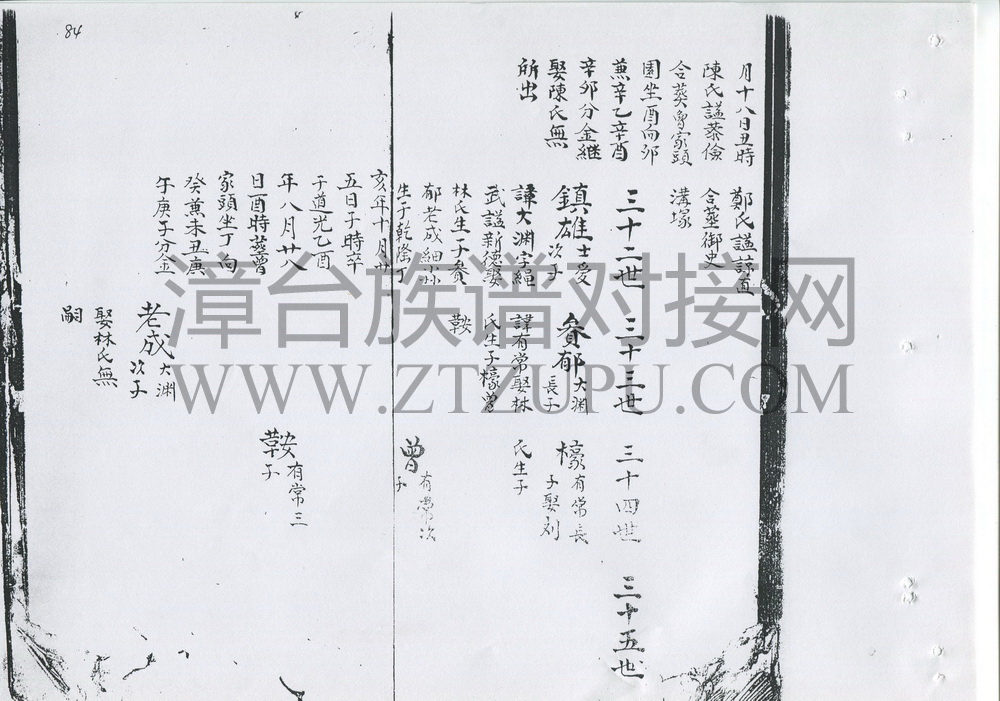 84
月十八日丑時
陳氏諡恭儉
合葬曾家頭
園坐酉向卯
兼辛乙辛酉
辛卯分金継
娶陳氏無
所出
鄭氏諡諒直
合葬御史
溝塚
三十二世
鎮雄士爱
次子
諱大渊字繩
武諡新德娶
林氏生子賚
郁老成細
生于乾隆丁
亥年十月廿
五日子時卒
于道光乙酉
年八月廿八
日酉時葬曾
家頭坐丁向
癸兼未丑庚
午庚子分金
三十三世
賚郁大渊
長子
諱有常娶林
氏生子檺曾
鞍
老成大渊
次子
娶林氏無
嗣
三十四世
檺有常長
子娶刘
氏生子
曾有常次
子
鞍有常三
子
三十五世
漳台族谱对接网
WWW.ZTZUPU.COM